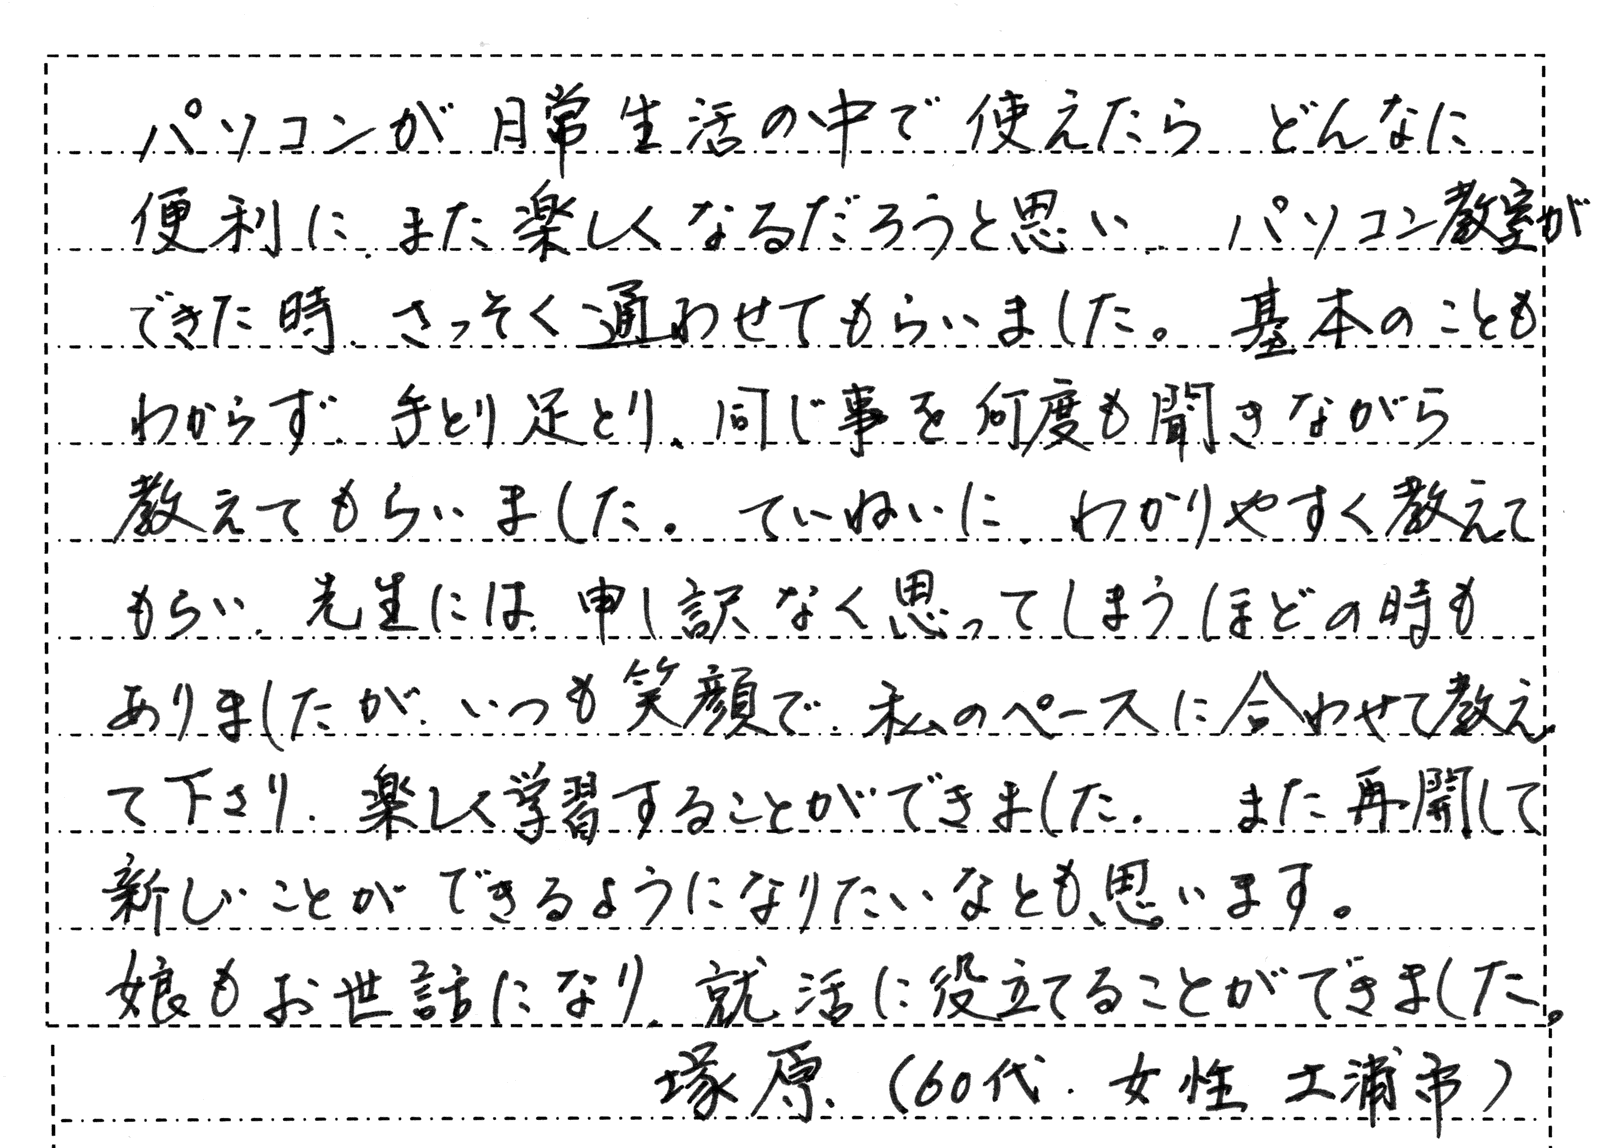 パソコンが日常生活の中で使えたら どんなに
便利に、また楽しくなるだろうと思い、 パソコン教室が
できた時、さっそく通わせてもらいました。 基本のことも
わからず、手とり足とり、同じ事を何度も聞きながら
教えてもらいました。ていねいに、わかりやすく教えて
もらい、先生には、申し訳なく思ってしまうほどの時も
ありましたが、いつも笑顔で、私のペースに合わせて教え
て下さり、楽しく学習することができました。 また再開して
新しいことができるようになりたいなとも、思います。
娘もお世話になり、就活に役立てることができました。
塚原 (60代、女性 土浦市)